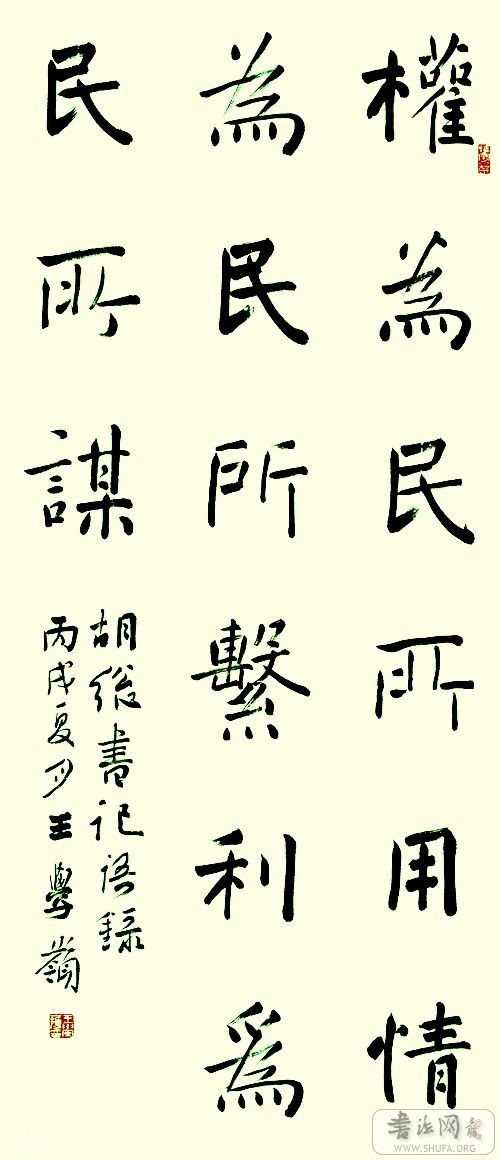 權為民所用情
為民所繫利為
民所謀
胡總書記語錄
丙戌夏月王學嶺
書法网
WWW.SHUFA.ORG